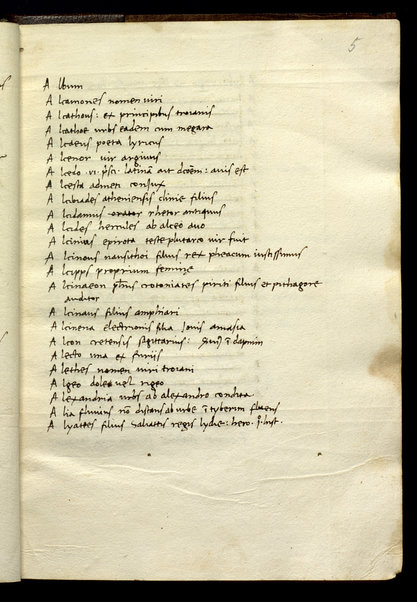 5
Album
Alcamones nomen viri
Alcathous: ex principibus troianis
Alcathoe urbs eadem cum megara
Alcaeus poeta lyricus
Alcenor vir argivus
Alcedo. vi. pſci. latina aut dcem: avis est
Alcesta admeti coniux
Alcibiades atheniensis cliniae filius
Alcidamus orator rhetor antiquus
Alcides hercules ab alceo avo
Alcinias epirota teste plutarco vir fuit
Alcinous nausithoi filius rex pheacum iustissimus
Alcipps proprium feminae
Alcmaeon crotoniates piriti filius et pithagore
auditor
Alcinaus filius amphiari
Alcmena electrionis filia Iouis amasia
Alcon cretensis sagittarius: daphnin
Alecto una ex furiis
Alethes nomen viri troiani
Algeo doleo vel rigeo
Alexandria urbs ab alexandro condita
Alia fluvius nō distans ab urbe ī tyberim fluens
Alyattes filius saliattis regis lydie: hero. hist.